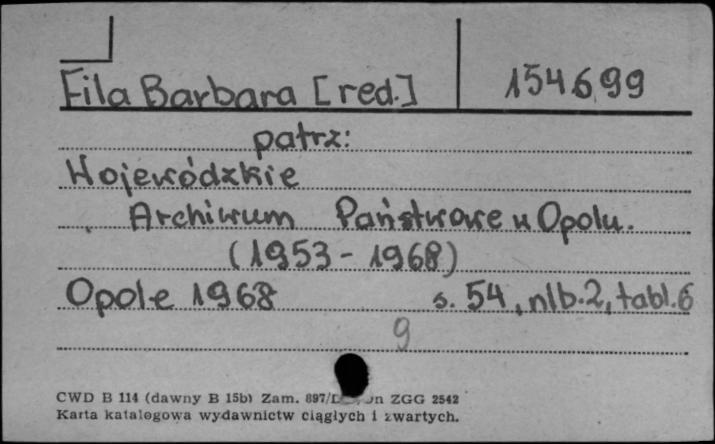 Fila Barbara [red.] 154699
patrz:
Wojewódzkie
Archiwum Państwowe w Opolu.
(1953 - 1968)
Opole 1968 s. 54, nlb.2, tabl.6
9
CWD B 114 (dawny B 15b) Zam. 897/ ZGG 2542
Karta katalogowa wydawnictw ciągłych i zwartych.